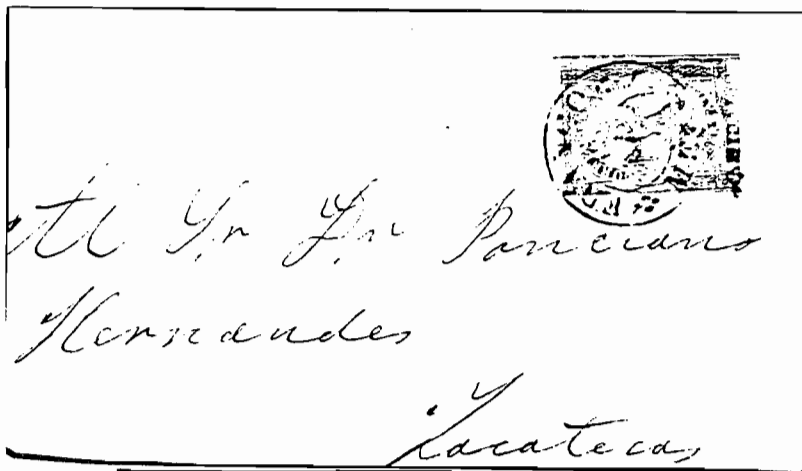 Al Sr Dn Ponciano
Hernandes
Zacatecas